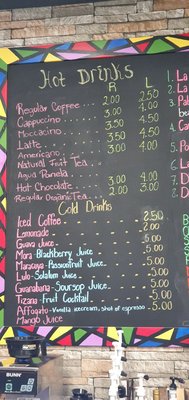 Hot Drinks
R L
Regular Coffee... 2.00 2.50
Cappuccino 3.00 4.00
Moccacino 3.50 4.50
Latte 3.50 4.50
Americano 3.00 4.00
Natural Fruit Tea
Agua Panela
Hot Chocolate 3.00 4.00
Regular Organic Tea 2.00 3.00
Cold Drinks
Iced Coffee 2.50
Lemonade 5.00
Guava Juice 5.00
Mora-Blackberry Juice 5.00
Maracuya-Passionfruit Juice 5.00
Lulo-Solanum Juice 5.00
Guanabana-Soursop Juice 5.00
Tizana-Fruit Cocktail 5.00
Affogato-Vanilla icecream, shot of espresso 5.00
Mango Juice 5.00
BUNN